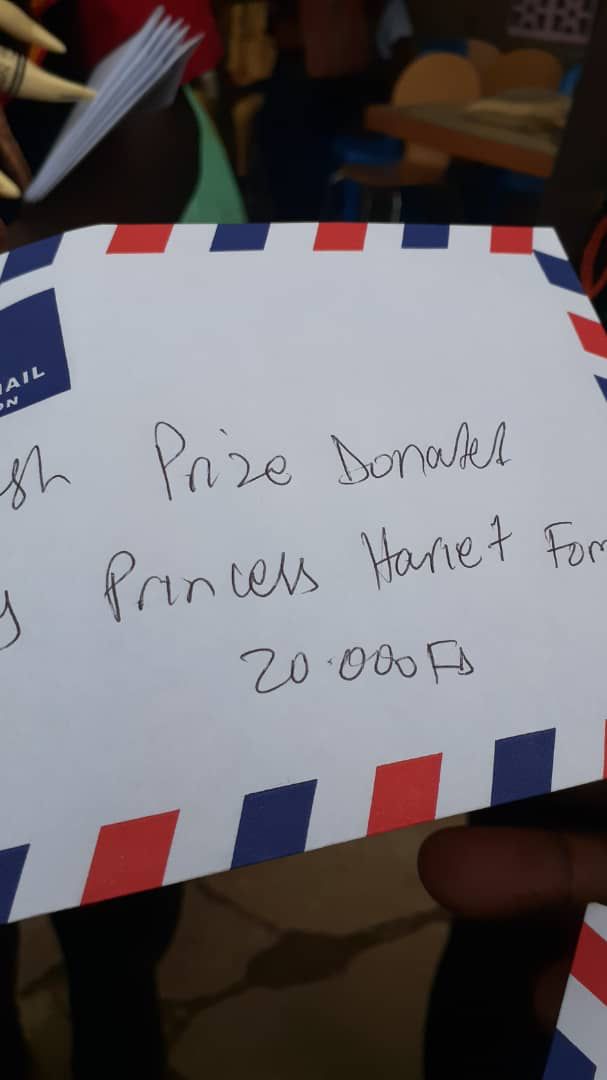 AIL
ON
sh Prize Donated
y Princess Hariet For
20.000 Fs